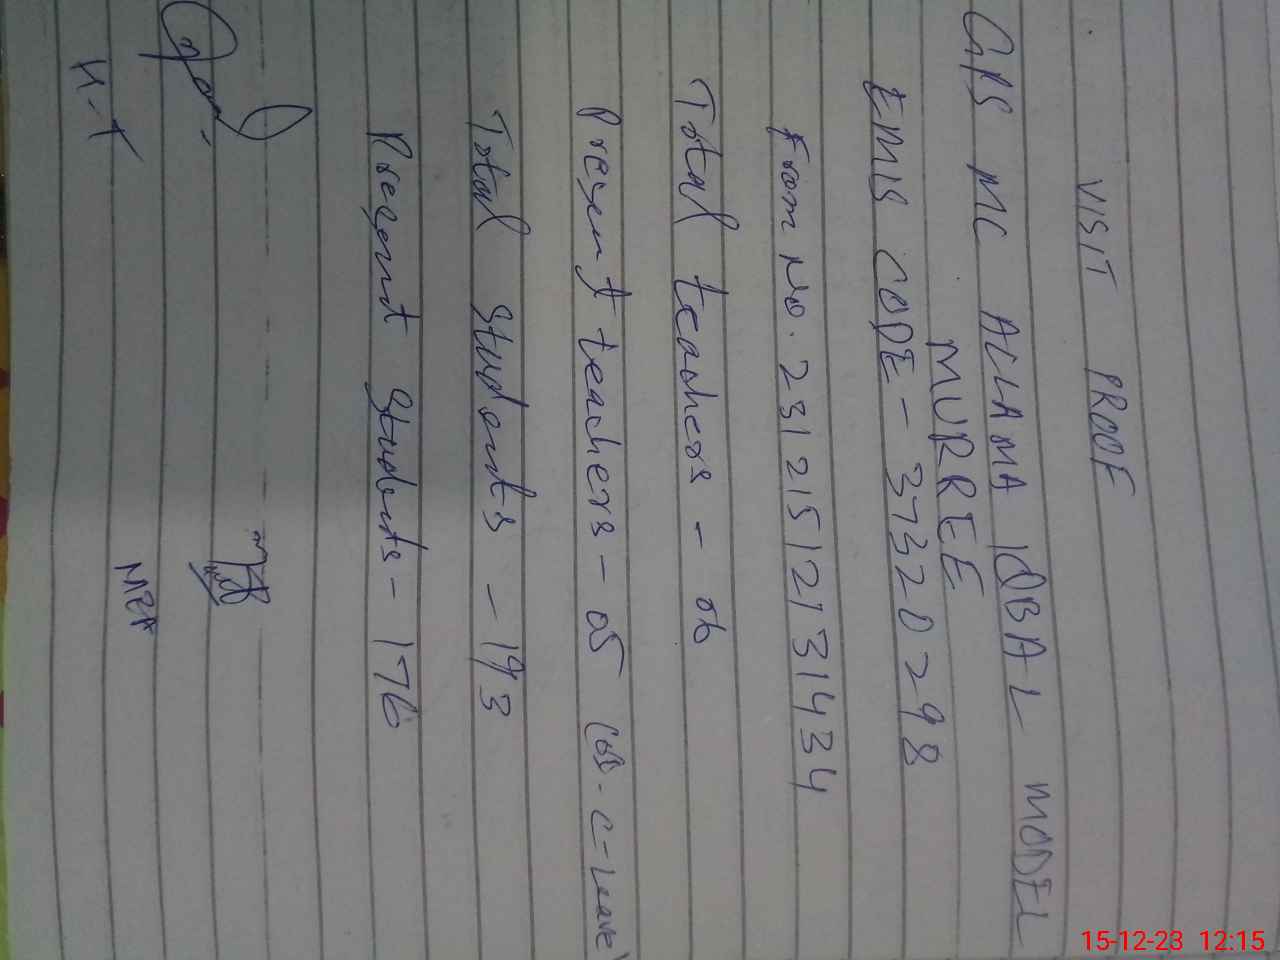 VISIT PROOF
GPS MC ALLAMA IQBAL MODEL
MURREE
EMIS CODE - 37320298
From No. 23121512131434
Total teachers - 06
Present teachers - 05 (01 - C-Leave)
Total Students - 193
Present Students - 176
H-T
MEA
15-12-23 12:15